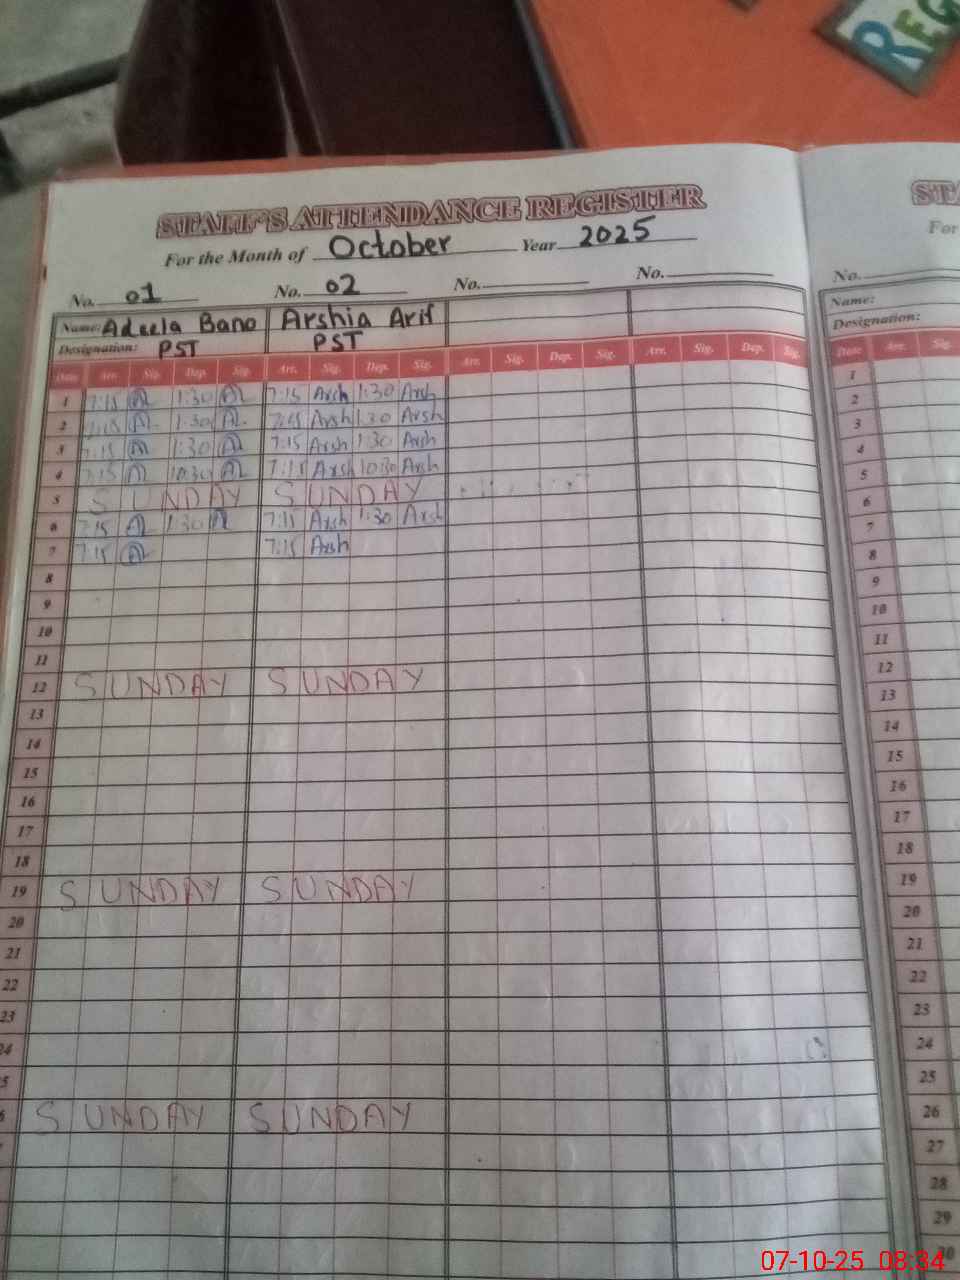 REG
STAFF'S ATTENDANCE REGISTER
For the Month of October Year 2025
No. 01 No. 02 No. No.
Name: Adeela Bano Arshia Arif
Designation: PST PST
Date Arr. Sig. Dep. Sig. Arr. Sig. Dep. Sig. Arr. Sig. Dep. Sig. Arr. Sig. Dep. Sig.
1 7:15 A 1:30 A 7:15 Arsh 1:30 Arsh
2 7:15 A 1:30 A 7:15 Arsh 1:30 Arsh
3 7:15 A 1:30 A 7:15 Arsh 1:30 Arsh
4 7:15 A 10:30 A 7:15 Arsh 10:30 Arsh
5 SUNDAY SUNDAY
6 7:15 A 1:30 A 7:15 Arsh 1:30 Arsh
7 7:15 A 7:15 Arsh
8
9
10
11
12 SUNDAY SUNDAY
13
14
15
16
17
18
19 SUNDAY SUNDAY
20
21
22
23
24
5
6 SUNDAY SUNDAY
STA
For
No.
Name:
Designation:
Date Arr. Sig.
1
2
3
4
5
6
7
8
9
10
11
12
13
14
15
16
17
18
19
20
21
22
23
24
25
26
27
28
29
30
07-10-25 08:34